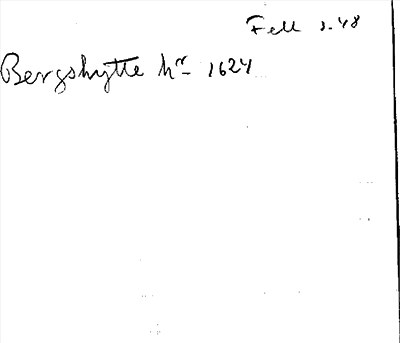 Fell s. 48
Bergshytte hr 1624